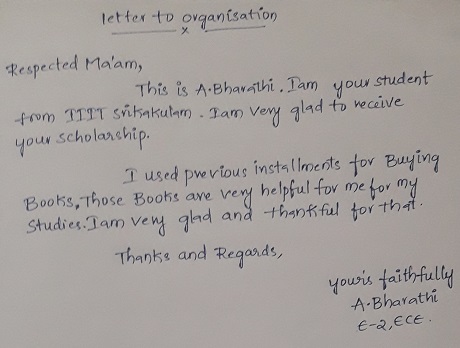 letter to organisation
x
Respected Ma'am,
This is A.Bharathi. Iam your student
from IIIT Srikakulam. Iam very glad to receive
your scholarship.
I used previous installments for Buying
Books, Those Books are very helpful for me for my
Studies. Iam very glad and thankful for that.
Thanks and Regards,
your's faithfully
A.Bharathi
E-2, ECE.